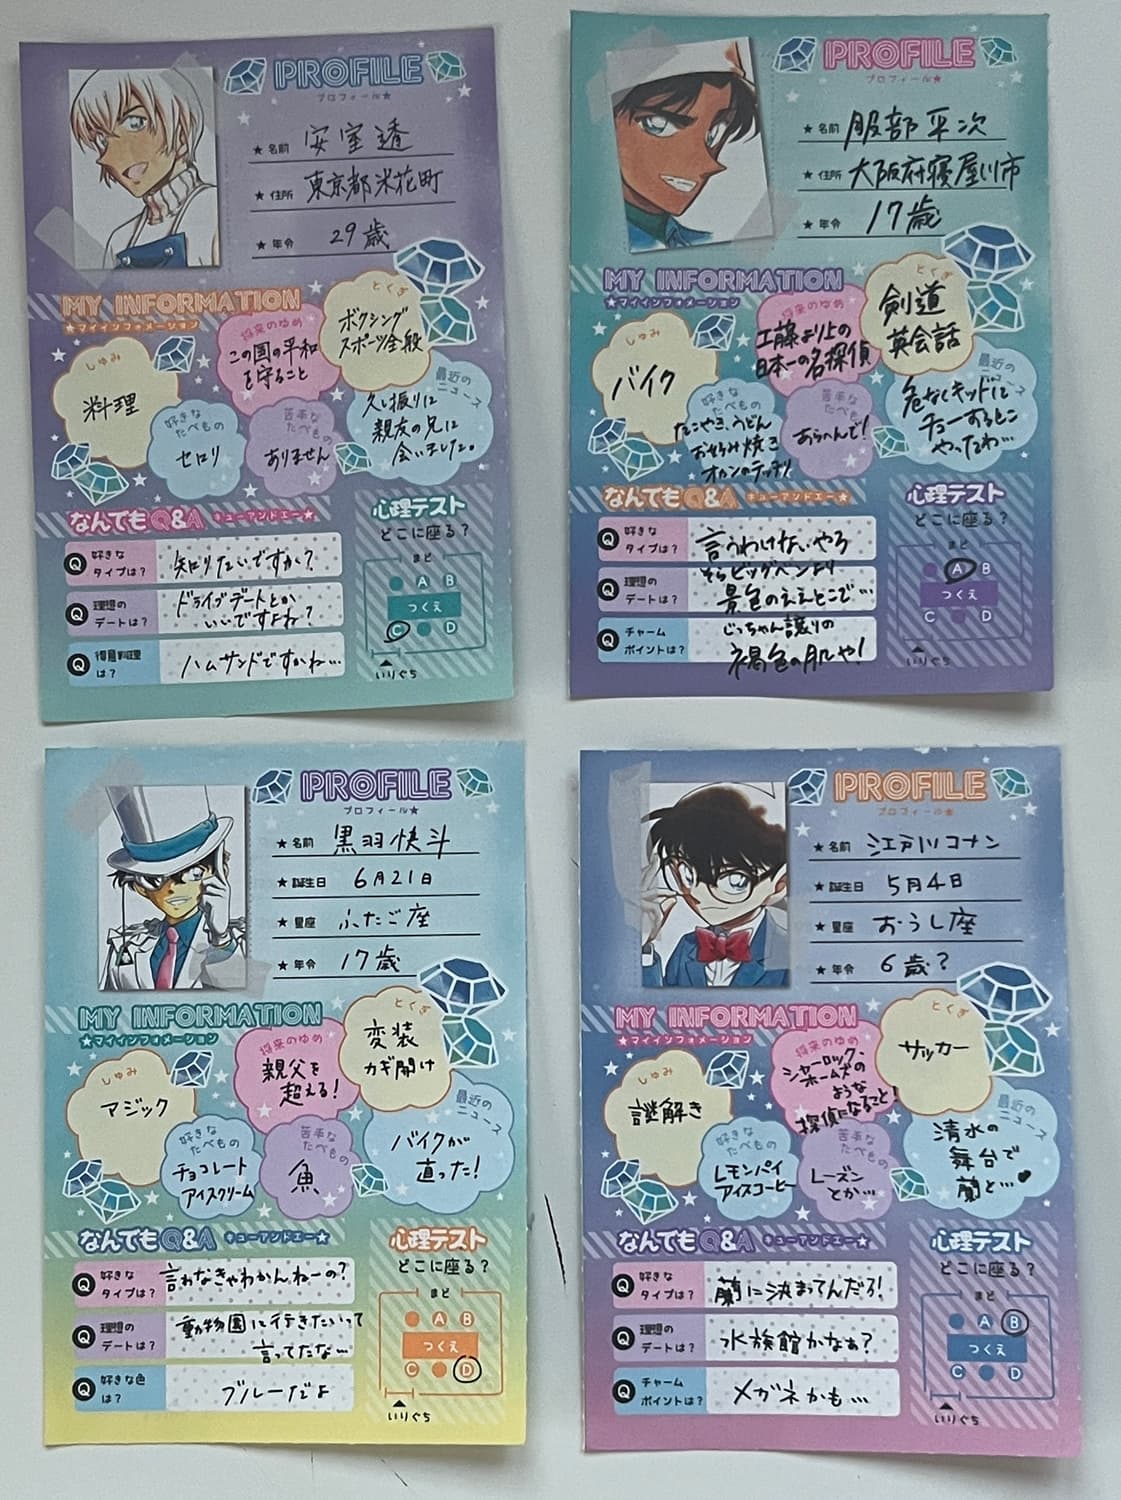 PROFILE
プロフィール★
★名前 安室透
★住所 東京都米花町
★年令 29歳
MY INFORMATION
★マイインフォメーション
しゅみ
料理
将来のゆめ
この国の平和
を守ること
とくぎ
ボクシング
スポーツ全般
好きな
たべもの
セロリ
苦手な
たべもの
ありません
最近の
ニュース
久し振りに
親友の兄に
会いました。
なんでもQ&A キューアンドエー★
Q 好きな
タイプは?
知りたいですか?
Q 理想の
デートは?
ドライブデートとか
いいですよね?
Q 得意料理
は?
ハムサンドですかね…
心理テスト
どこに座る?
まど
A B
つくえ
C D
いりぐち
PROFILE
プロフィール★
★名前 服部平次
★住所 大阪府寝屋川市
★年令 17歳
MY INFORMATION
★マイインフォメーション
しゅみ
バイク
将来のゆめ
工藤より上の
日本一の名探偵
とくぎ
剣道
英会話
好きな
たべもの
たこやき、うどん
お好み焼き
オカンのテッチリ
苦手な
たべもの
あらへんで!
最近の
ニュース
危なくキッドに
チューするとこ
やったわ…
なんでもQ&A キューアンドエー★
Q 好きな
タイプは?
言うわけないやろ
Q 理想の
デートは?
そらビッグベンより
景色のええとこで…
Q チャーム
ポイントは?
じっちゃん譲りの
褐色の肌や!
心理テスト
どこに座る?
まど
A B
つくえ
C D
いりぐち
PROFILE
プロフィール★
★名前 黒羽快斗
★誕生日 6月21日
★星座 ふたご座
★年令 17歳
MY INFORMATION
★マイインフォメーション
しゅみ
マジック
将来のゆめ
親父を
超える!
とくぎ
変装
カギ開け
好きな
たべもの
チョコレート
アイスクリーム
苦手な
たべもの
魚
最近の
ニュース
バイクが
直った!
なんでもQ&A キューアンドエー★
Q 好きな
タイプは?
言わなきゃわかんねーの?
Q 理想の
デートは?
動物園に行きたいって
言ってたな…
Q 好きな色
は?
ブルーだよ
心理テスト
どこに座る?
まど
A B
つくえ
C D
いりぐち
PROFILE
プロフィール★
★名前 江戸川コナン
★誕生日 5月4日
★星座 おうし座
★年令 6歳?
MY INFORMATION
★マイインフォメーション
しゅみ
謎解き
将来のゆめ
シャーロック・
ホームズの
ような
探偵になること!
とくぎ
サッカー
好きな
たべもの
レモンパイ
アイスコーヒー
苦手な
たべもの
レーズン
とか…
最近の
ニュース
清水の
舞台で
蘭と…
なんでもQ&A キューアンドエー★
Q 好きな
タイプは?
蘭に決まってんだろ!
Q 理想の
デートは?
水族館かなぁ?
Q チャーム
ポイントは?
メガネかも…
心理テスト
どこに座る?
まど
A B
つくえ
C D
いりぐち